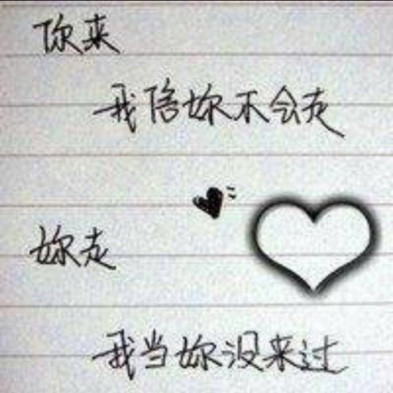 妳来
我陪妳不会走
妳走
我当妳没来过